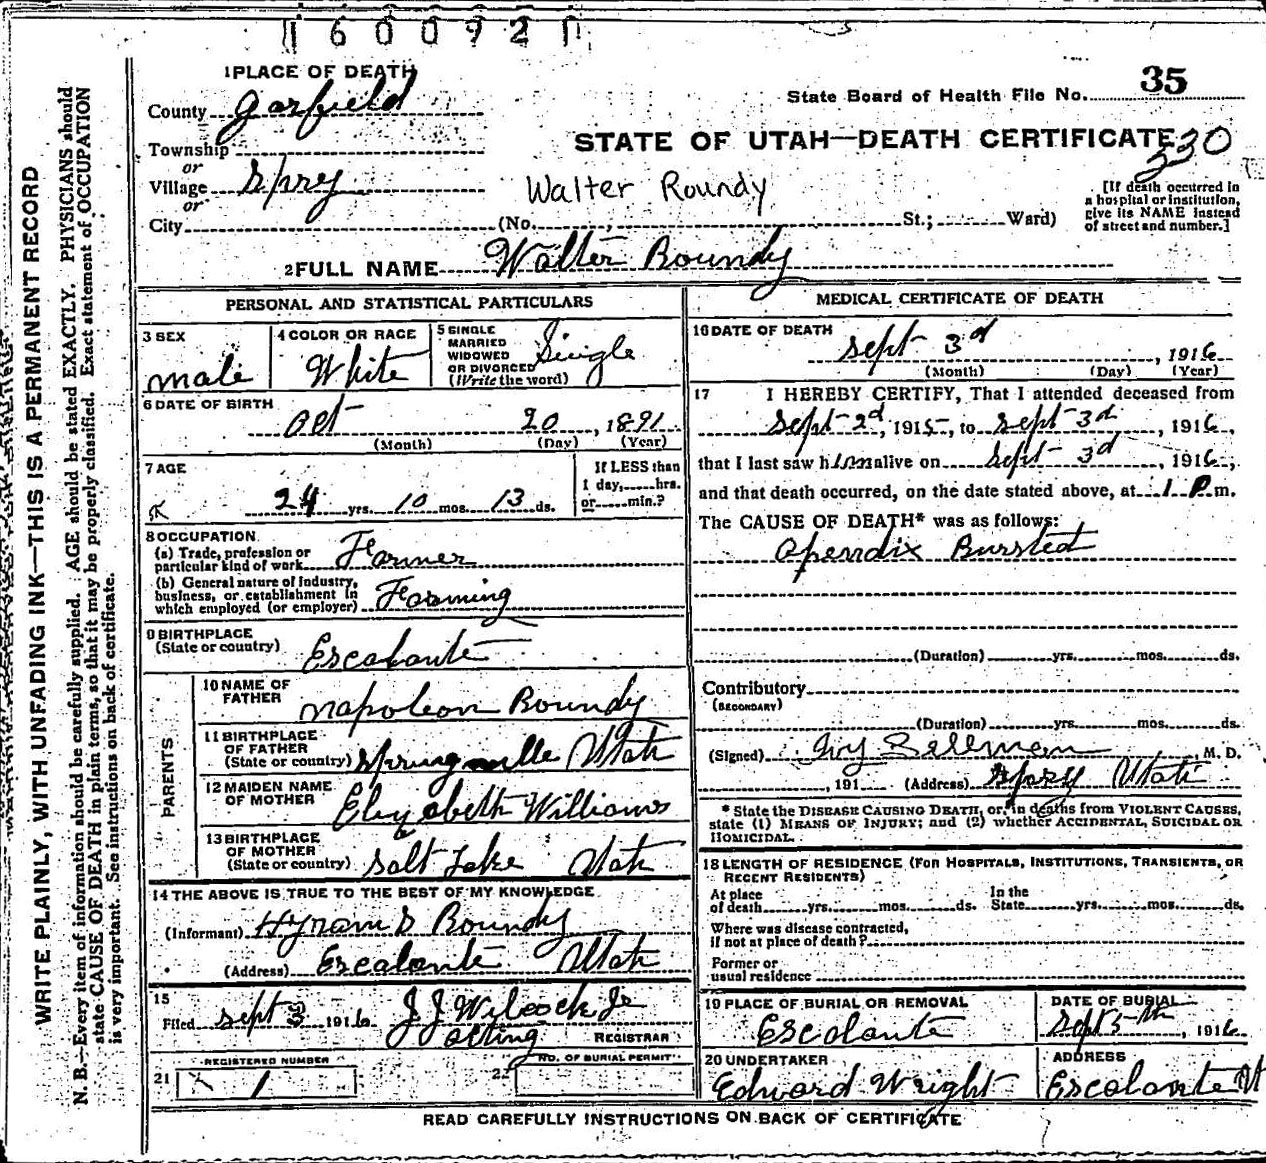 1600921
1 PLACE OF DEATH
County Garfield
State Board of Health File No. 35
STATE OF UTAH—DEATH CERTIFICATE 330
Township
or
Village Spry
or
City (No. , St.; Ward)
Walter Roundy
[If death occurred in
a hospital or institution,
give its NAME instead
of street and number.]
2 FULL NAME Walter Roundy
PERSONAL AND STATISTICAL PARTICULARS
3 SEX
male
4 COLOR OR RACE
White
5 SINGLE
MARRIED
WIDOWED
OR DIVORCED
(Write the word)
Single
6 DATE OF BIRTH
Oct 20, 1891
(Month) (Day) (Year)
7 AGE
24 yrs. 10 mos. 13 ds.
If LESS than
1 day, hrs.
or min.?
8 OCCUPATION
(a) Trade, profession or
particular kind of work Farmer
(b) General nature of industry,
business, or establishment in
which employed (or employer) Farming
9 BIRTHPLACE
(State or country) Escalante
PARENTS
10 NAME OF
FATHER Napoleon Roundy
11 BIRTHPLACE
OF FATHER
(State or country) Springville Utah
12 MAIDEN NAME
OF MOTHER Elizabeth Williams
13 BIRTHPLACE
OF MOTHER
(State or country) Salt Lake Utah
14 THE ABOVE IS TRUE TO THE BEST OF MY KNOWLEDGE
(Informant) Hyram D Roundy
(Address) Escalante Utah
15
Filed Sept 3 1916 J J Wilcock Jr
acting REGISTRAR
REGISTERED NUMBER
21 1
NO. OF BURIAL PERMIT
22
MEDICAL CERTIFICATE OF DEATH
16 DATE OF DEATH
Sept 3d, 1916
(Month) (Day) (Year)
17 I HEREBY CERTIFY, That I attended deceased from
Sept 2d, 1915, to Sept 3d, 1916,
that I last saw him alive on Sept 3d, 1916,
and that death occurred, on the date stated above, at 1 P m.
The CAUSE OF DEATH* was as follows:
Apendix Bursted
(Duration) yrs. mos. ds.
Contributory
(SECONDARY)
(Duration) yrs. mos. ds.
(Signed) M. D.
, 191 (Address) Spry Utah
* State the DISEASE CAUSING DEATH, or, in deaths from VIOLENT CAUSES,
state (1) MEANS OF INJURY; and (2) whether ACCIDENTAL, SUICIDAL OR
HOMICIDAL.
18 LENGTH OF RESIDENCE (FOR HOSPITALS, INSTITUTIONS, TRANSIENTS, OR
RECENT RESIDENTS)
At place
of death yrs. mos. ds.
In the
State yrs. mos. ds.
Where was disease contracted,
if not at place of death?
Former or
usual residence
19 PLACE OF BURIAL OR REMOVAL
Escalante
DATE OF BURIAL
Sept 5th, 1916
20 UNDERTAKER
Edward Wright
ADDRESS
Escalante Ut
READ CAREFULLY INSTRUCTIONS ON BACK OF CERTIFICATE
WRITE PLAINLY, WITH UNFADING INK—THIS IS A PERMANENT RECORD
N. B.—Every item of information should be carefully supplied. AGE should be stated EXACTLY. PHYSICIANS should
state CAUSE OF DEATH in plain terms, so that it may be properly classified. Exact statement of OCCUPATION
is very important. See instructions on back of certificate.